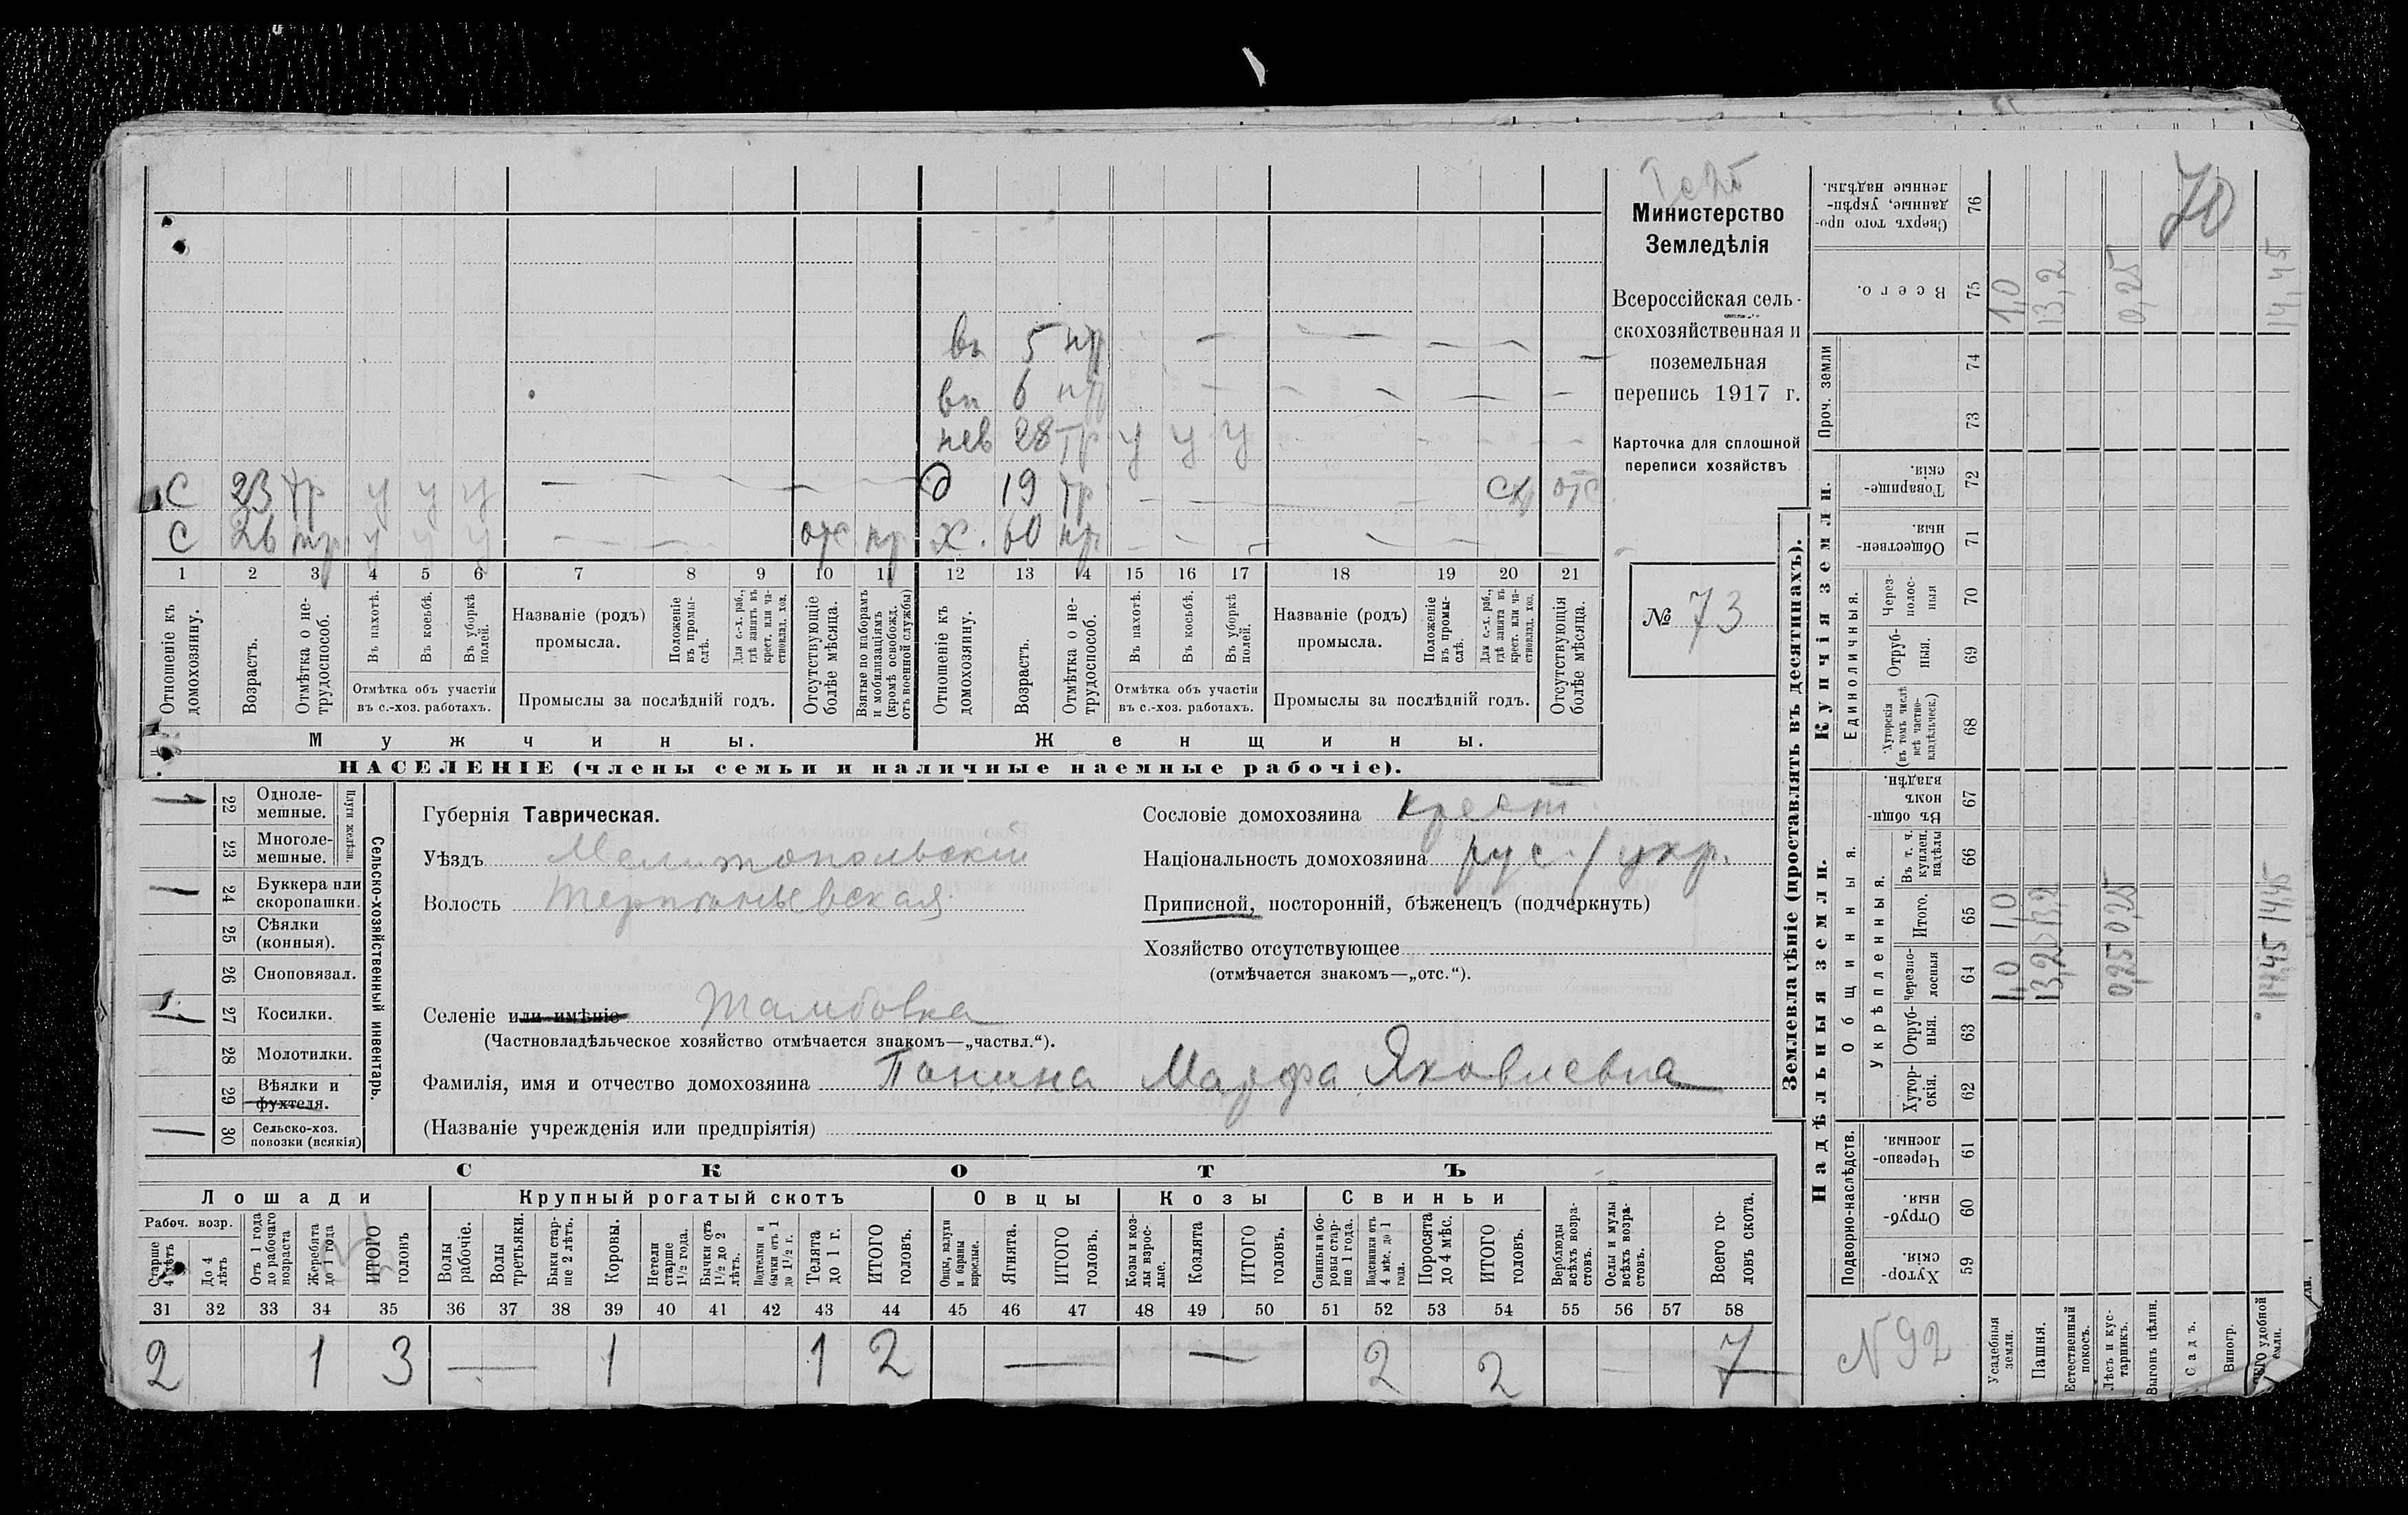 70
Министерство
Земледѣлія
Всероссійская сель-
скохозяйственная и
поземельная
перепись 1917 г.
Карточка для сплошной
переписи хозяйствъ
№ 73
вн 5 нтр
вн 6 нтр
нев 28 тр у у у
С 23 тр у у у д 19 тр отс
С 26 тр у у у отс х. 60 нтр
1 2 3 4 5 6 7 8 9 10 11 12 13 14 15 16 17 18 19 20 21
Отношеніе къ домохозяину.
Возрастъ.
Отмѣтка о не-трудоспособ.
Въ пахотѣ.
Въ косьбѣ.
Въ уборкѣ полей.
Отмѣтка объ участіи
въ с.-хоз. работахъ.
Названіе (родъ)
промысла.
Положеніе въ промы-слѣ.
Для с.-х. раб., гдѣ занятъ въ крест. или ча-стновлад. хоз.
Промыслы за послѣдній годъ.
Отсутствующіе болѣе мѣсяца.
Взятые по наборамъ и мобилизаціямъ (кромѣ освобожд. отъ военной службы)
Отношеніе къ домохозяину.
Возрастъ.
Отмѣтка о не-трудоспособ.
Въ пахотѣ.
Въ косьбѣ.
Въ уборкѣ полей.
Отмѣтка объ участіи
въ с.-хоз. работахъ.
Названіе (родъ)
промысла.
Положеніе въ промы-слѣ.
Для с.-х. раб., гдѣ занята въ крест. или ча-стновлад. хоз.
Промыслы за послѣдній годъ.
Отсутствующія болѣе мѣсяца.
Мужчины. Женщины.
НАСЕЛЕНІЕ (члены семьи и наличные наемные рабочіе).
Сельско-хозяйственный инвентарь.
Плуги желѣзн.
1 22 Одноле-мешные.
23 Многоле-мешные.
1 24 Буккера или скоропашки.
25 Сѣялки (конныя).
26 Сноповязал.
1 27 Косилки.
28 Молотилки.
29 Вѣялки и фухтеля.
1 30 Сельско-хоз. повозки (всякія)
Губернія Таврическая.
Уѣздъ Мелитопольскій
Волость Терпѣньевская
Сословіе домохозяина крест.
Національность домохозяина рус. / укр.
Приписной, посторонній, бѣженецъ (подчеркнуть)
Хозяйство отсутствующее
(отмѣчается знакомъ—„отс.“).
Селеніе или имѣніе Тамбовка
(Частновладѣльческое хозяйство отмѣчается знакомъ—„частвл.“).
Фамилія, имя и отчество домохозяина Панина Марфа Яковлевна
(Названіе учрежденія или предпріятія)
СКОТЪ
Лошади Крупный рогатый скотъ Овцы Козы Свиньи
Рабоч. возр.
Старше 4 лѣтъ
До 4 лѣтъ
Отъ 1 года до рабочаго возраста
Жеребята до 1 года
ИТОГО головъ
Волы рабочіе.
Волы третьяки.
Быки стар-ше 2 лѣтъ.
Коровы.
Нетели старше 1½ года.
Бычки отъ 1½ до 2 лѣтъ.
Подтелки и бычки отъ 1 до 1½ г.
Телята до 1 г.
ИТОГО головъ.
Овцы, валухи и бараны взрослые.
Ягнята.
ИТОГО головъ.
Козы и коз-лы взрос-лые.
Козлята
ИТОГО головъ.
Свиньи и бо-ровы стар-ше 1 года.
Подсвинки отъ 4 мѣс. до 1 года.
Поросята до 4 мѣс.
ИТОГО головъ.
Верблюды всѣхъ возра-стовъ.
Ослы и мулы всѣхъ возра-стовъ.
Всего го-ловъ скота.
31 32 33 34 35 36 37 38 39 40 41 42 43 44 45 46 47 48 49 50 51 52 53 54 55 56 57 58
2 1 3 — 1 1 2 — — 2 2 7
Землевладѣніе (проставлять въ десятинахъ).
Надѣльныя земли.
Купчія земли.
Проч. земли
Подворно-наслѣдств.
Общинныя.
Укрѣпленныя.
Единоличныя.
Хутор-скія. 59
Отруб-ныя. 60
Черезпо-лосныя. 61
Хутор-скія. 62
Отруб-ныя. 63
Черезпо-лосныя 64
Итого. 65
Въ т. ч. куплен. надѣлы 66
Въ общин-номъ владѣн. 67
Хуторскія (въ томъ числѣ всѣ частно-владѣльческ.) 68
Отруб-ныя. 69
Через-полос-ныя 70
Обществен-ныя. 71
Товарище-скія. 72
73
74
Всего. 75
Сверхъ того про-данные, укрѣп-ленные надѣлы. 76
N 92
Усадебныя земли. 1,0 1,0 1,0
Пашня. 13,2 13,2 13,2
Естественный покосъ.
Лѣсъ и кус-тарникъ. 0,25 0,25 0,25
Выгонъ цѣлин.
Садъ.
Виногр.
удобной земли. 14,45 14,45 14,45